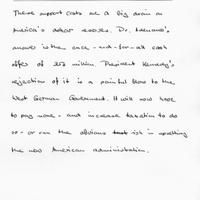 These support costs are a big drain on
America's dollar reserves. Dr. Brentano's
answer is the once-and-for-all cash
offer of £357 million. President Kennedy's
rejection of it is a painful blow to the
West German Government. It will now have
to pay more - and increase taxation to do
so - or run the obvious risk in upsetting
the new American administration.